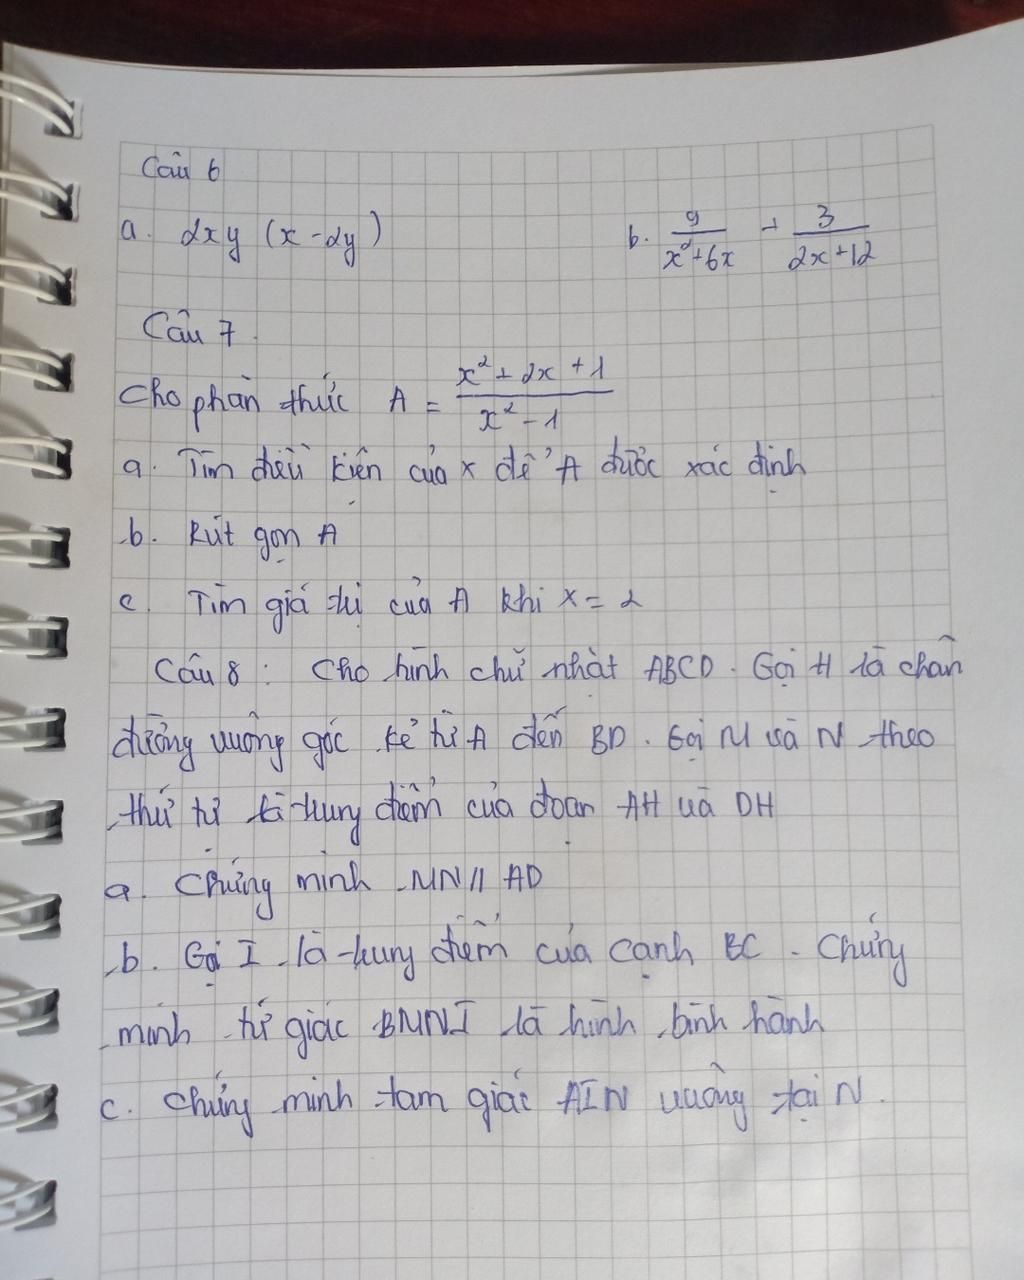 Câu 6
a. 2xy (x - 2y)
b. 9/(x²+6x) + 3/(2x+12)
Câu 7.
Cho phân thức A = (x² + 2x + 1)/(x² - 1)
a. Tìm điều kiện của x để A được xác định
b. Rút gọn A
c. Tìm giá trị của A khi x = 2
Câu 8 : Cho hình chữ nhật ABCD. Gọi H là chân
đường vuông góc kẻ từ A đến BD. Gọi M và N theo
thứ tự là trung điểm của đoạn AH và DH
a. Chứng minh MN // AD
b. Gọi I là trung điểm của cạnh BC. Chứng
minh tứ giác BMNI là hình bình hành
c. Chứng minh tam giác AIN vuông tại N.